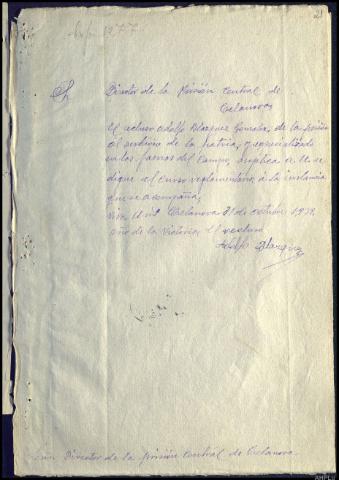 2
Director de la Prisión Central de
Celanova
El recluso Adolfo Blazquez Gonzalez, de la prisión
al servicio de la patria, y especializado
en las faenas del campo, suplica a U. se
digne el curso reglamentario, á la instancia
que se acompaña,
Celanova 31 de octubre 1939.
año de la Victoria. El recluso
Adolfo Blazquez
Director de la prisión Central de Celanova.
AHPLU